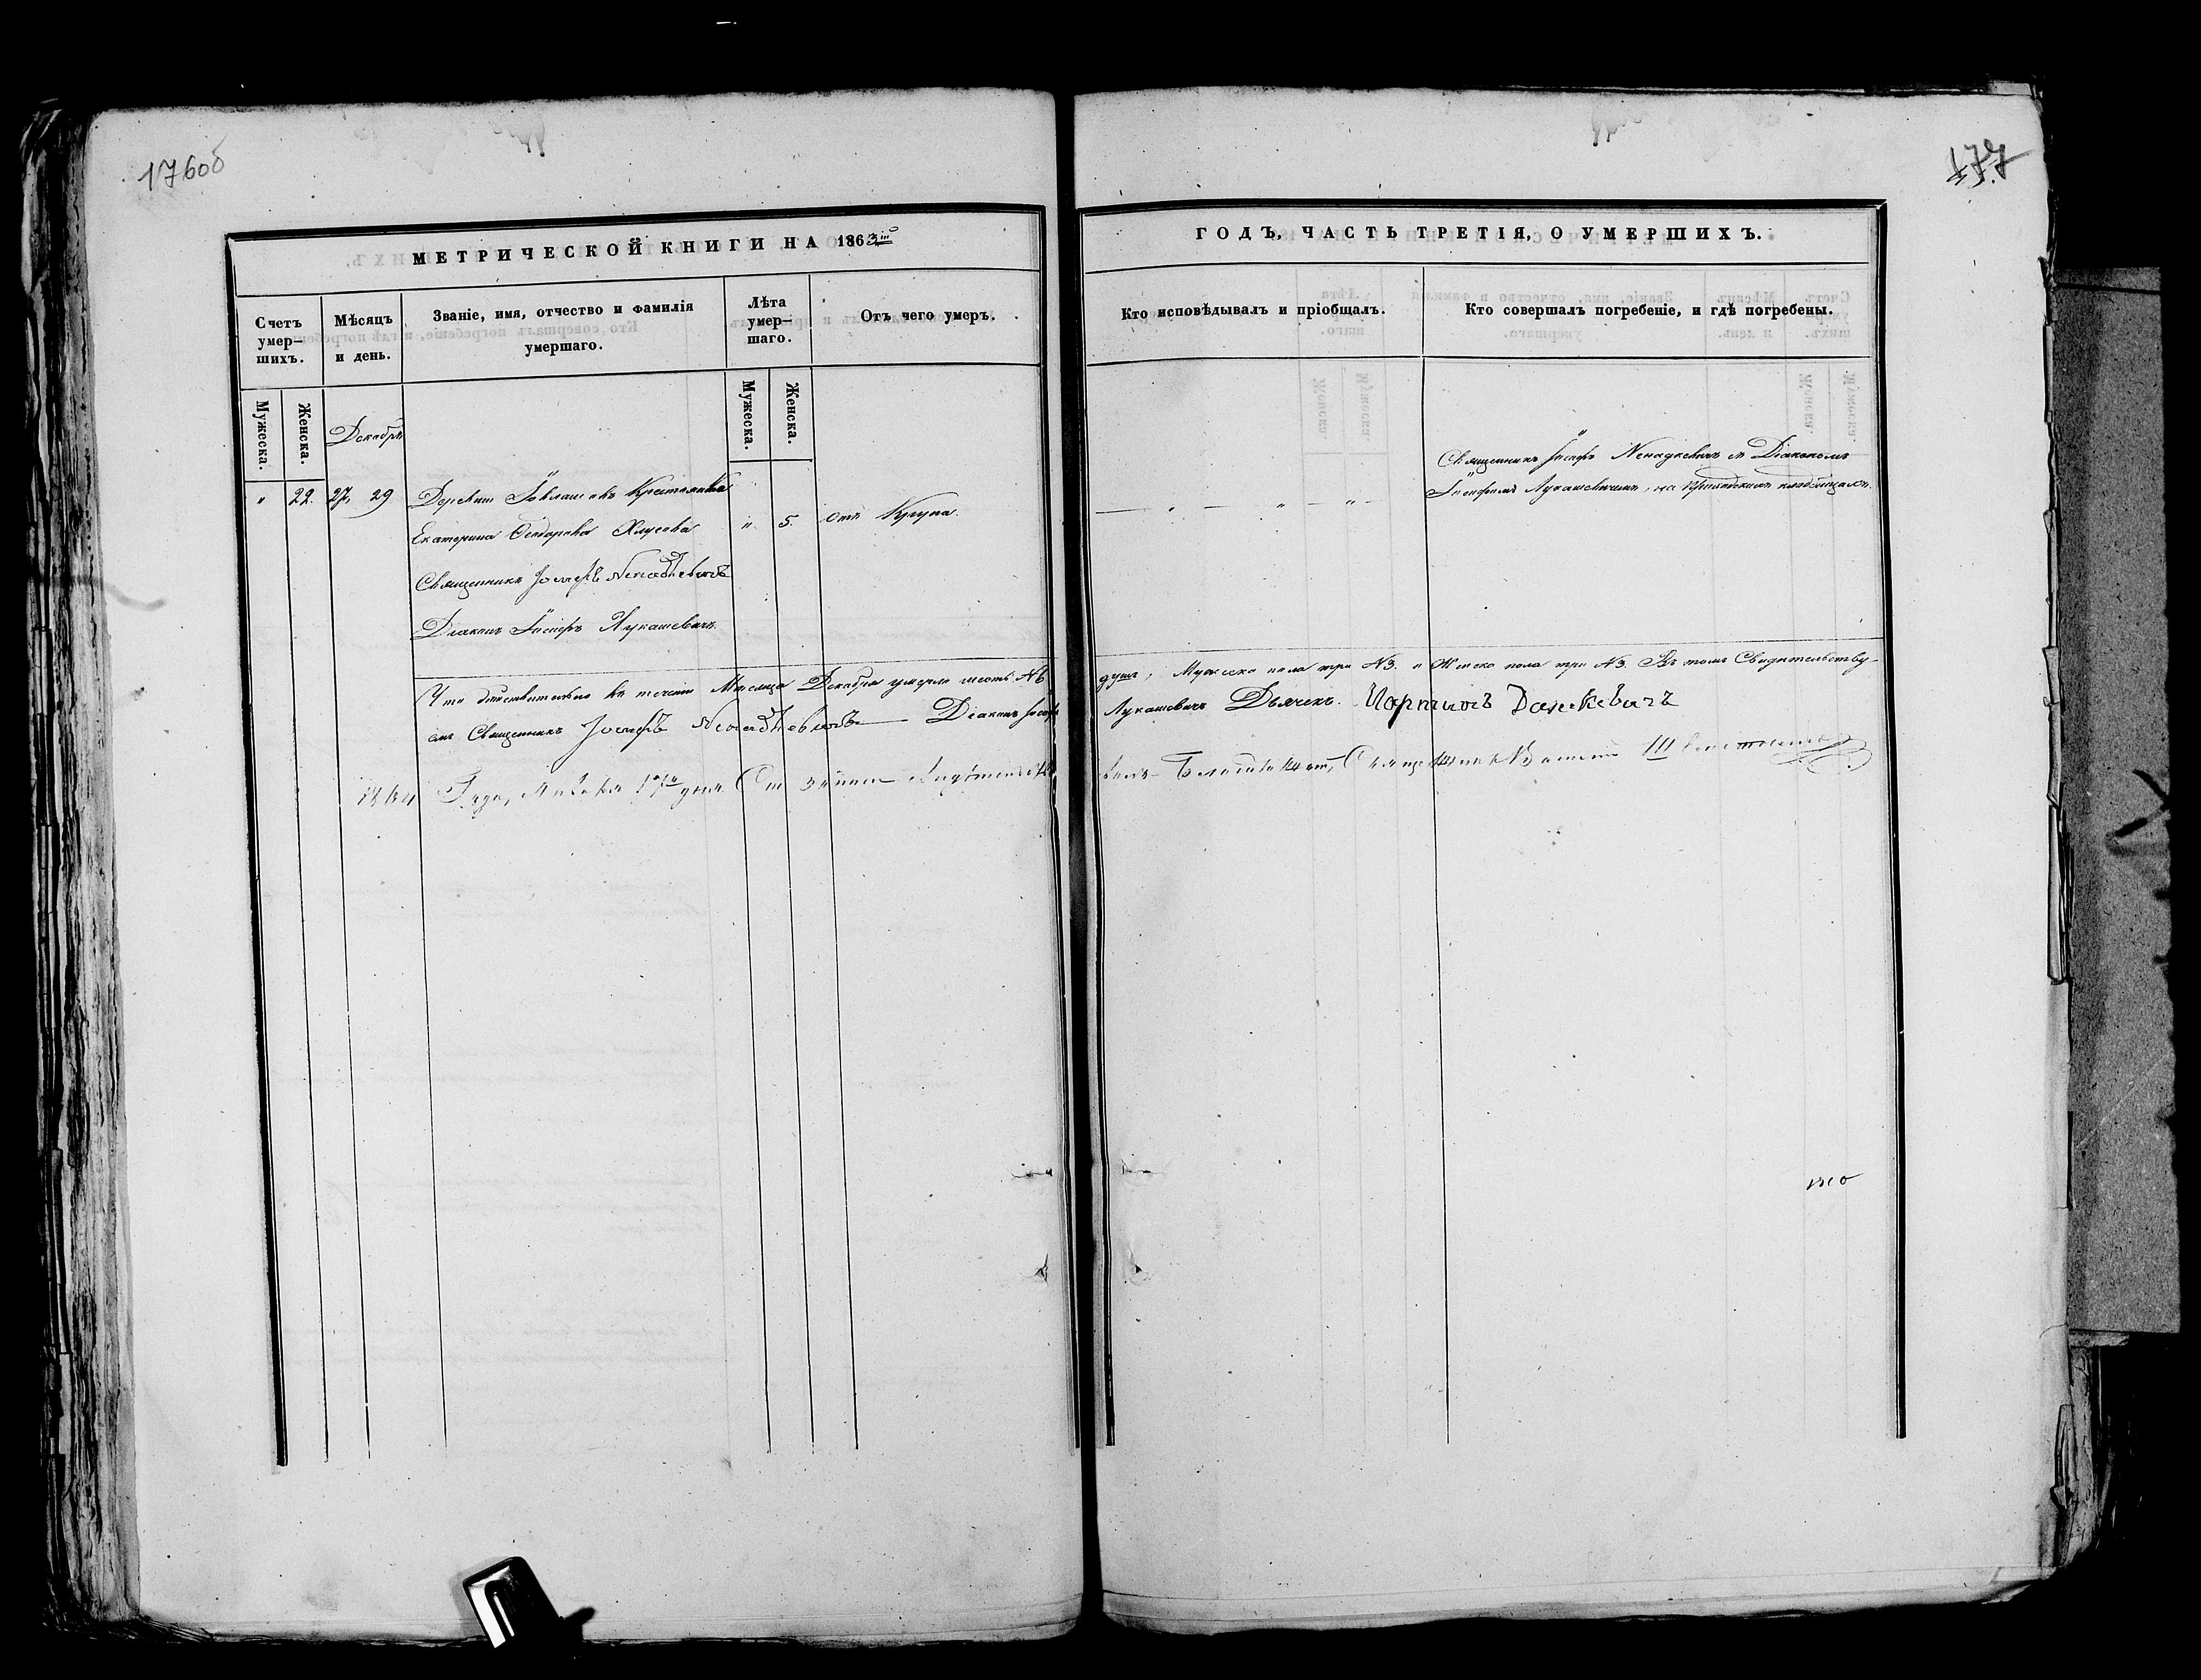 176об
177
МЕТРИЧЕСКОЙ КНИГИ НА 1863
ГОДЪ, ЧАСТЬ ТРЕТІЯ, О УМЕРШИХЪ.
Счетъ умер-шихъ.
Мѣсяцъ и день.
Званіе, имя, отчество и фамилія умершаго.
Лѣта умер-шаго.
Отъ чего умеръ.
Кто исповѣдывалъ и пріобщалъ.
Кто совершалъ погребеніе, и гдѣ погребены.
Мужеска.
Женска.
Декабрь
Мужеска.
Женска.
" 22. 27, 29
Деревни Крестьянка
Екатерина Ѳеодорова
" 5. отъ Крупа.
Священникъ Іосифъ Ненадкевичъ
Діаконъ Іосифъ Лукашевичъ.
Священникъ Іосифъ Ненадкевичъ съ Діакономъ
Іосифомъ Лукашевичемъ, на кладбищахъ.
Что дѣйствительно въ теченіи Мѣсяца Декабря умерло шесть №6
душъ, Мужеска пола три №3. и Женска пола три №3. Въ томъ Свидѣтельству-
емъ Священникъ Іосифъ Ненадкевичъ Діаконъ Іосифъ
Лукашевичъ Дьячекъ. Мартинъ Данкевичъ
1864 Года, 17го дня
Священникъ